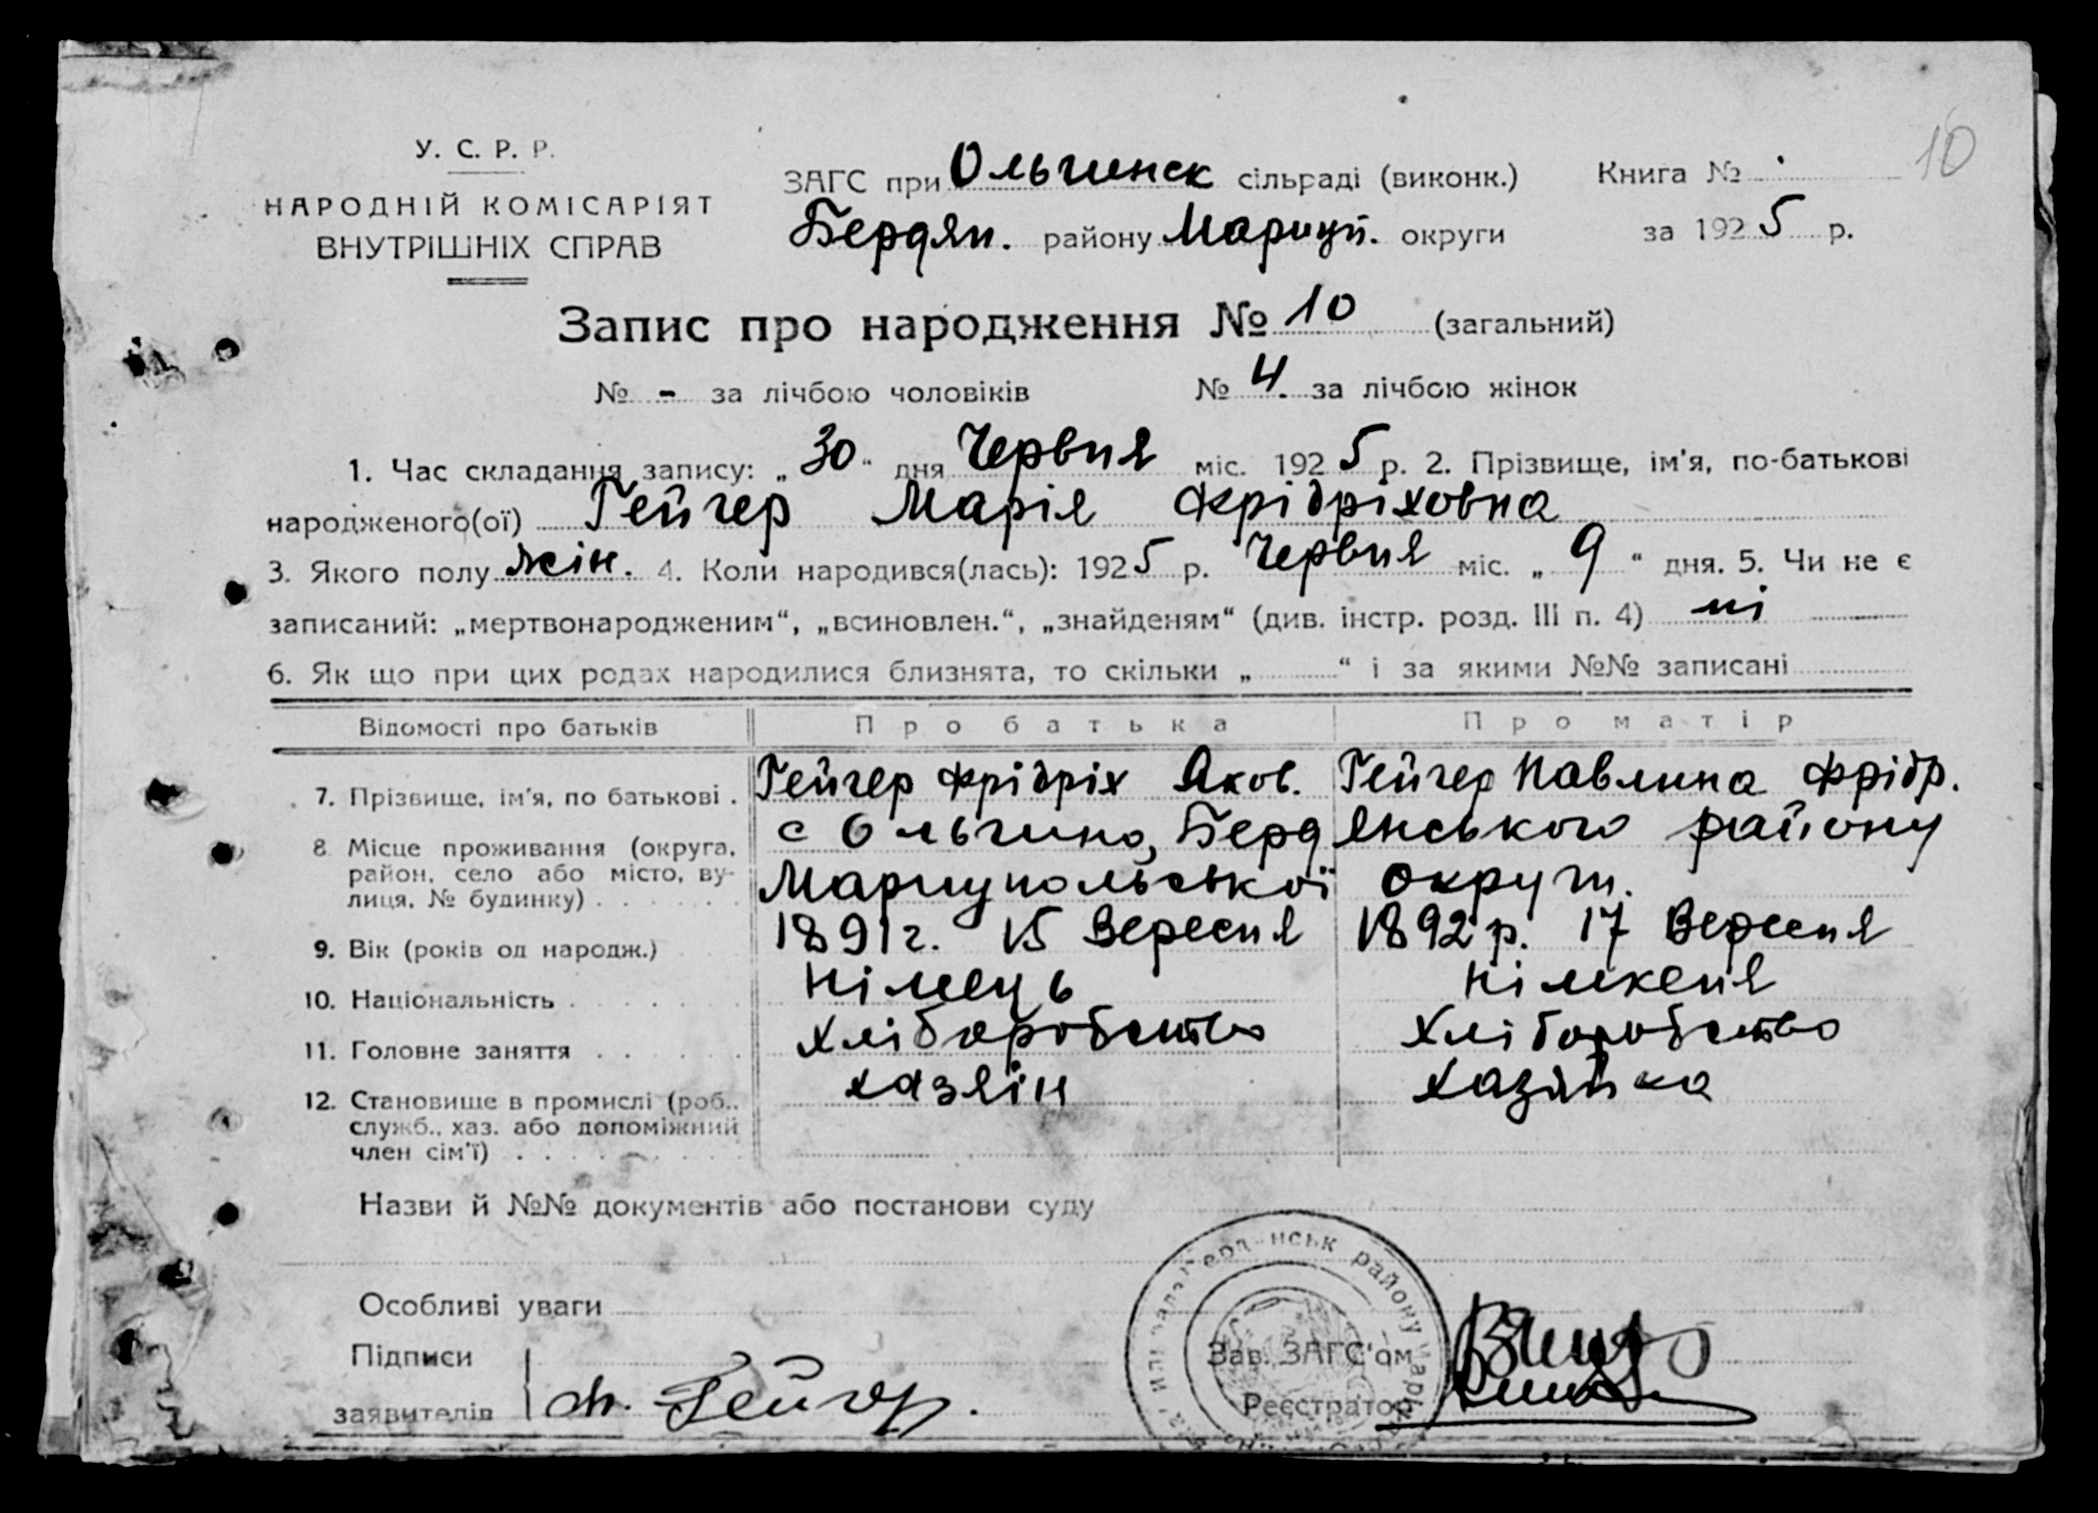 10
У. С. Р. Р.
НАРОДНІЙ КОМІСАРІЯТ
ВНУТРІШНІХ СПРАВ
ЗАГС при Ольгинск сільраді (виконк.)
Бердян. району Мариуп. округи
Книга №
за 1925 р.
Запис про народження № 10 (загальний)
№ - за лічбою чоловіків № 4. за лічбою жінок
1. Час складання запису: „30“ дня Червня міс. 1925 р. 2. Прізвище, ім'я, по-батькові
народженого(ої) Гейгер Марія Фрідріховна
3. Якого полу жін. 4. Коли народився(лась): 1925 р. Червня міс. „9“ дня. 5. Чи не є
записаний: „мертвонародженим“, „всиновлен.“, „знайденям“ (див. інстр. розд. III п. 4) ні
6. Як що при цих родах народилися близнята, то скільки „ “ і за якими №№ записані
Відомості про батьків Про батька Про матір
7. Прізвище, ім'я, по батькові . Гейгер Фрідріх Яков. Гейгер Павлина Фрідр.
8. Місце проживання (округа, район, село або місто, вулиця, № будинку) с Ольгино, Бердянського району
Мариупольської округи.
9. Вік (років од народж.) 1891 г. 15 Вересня 1892 р. 17 Вересня
10. Національність Німець Німкеня
11. Головне заняття Хліборобство Хліборобство
12. Становище в промислі (роб., служб., хаз. або допоміжний член сім'ї) хазяін хазяйка
Назви й №№ документів або постанови суду
Особливі уваги
Підписи
заявителів Ф. Гейгер.
Зав. ЗАГС'ом
Реєстратор